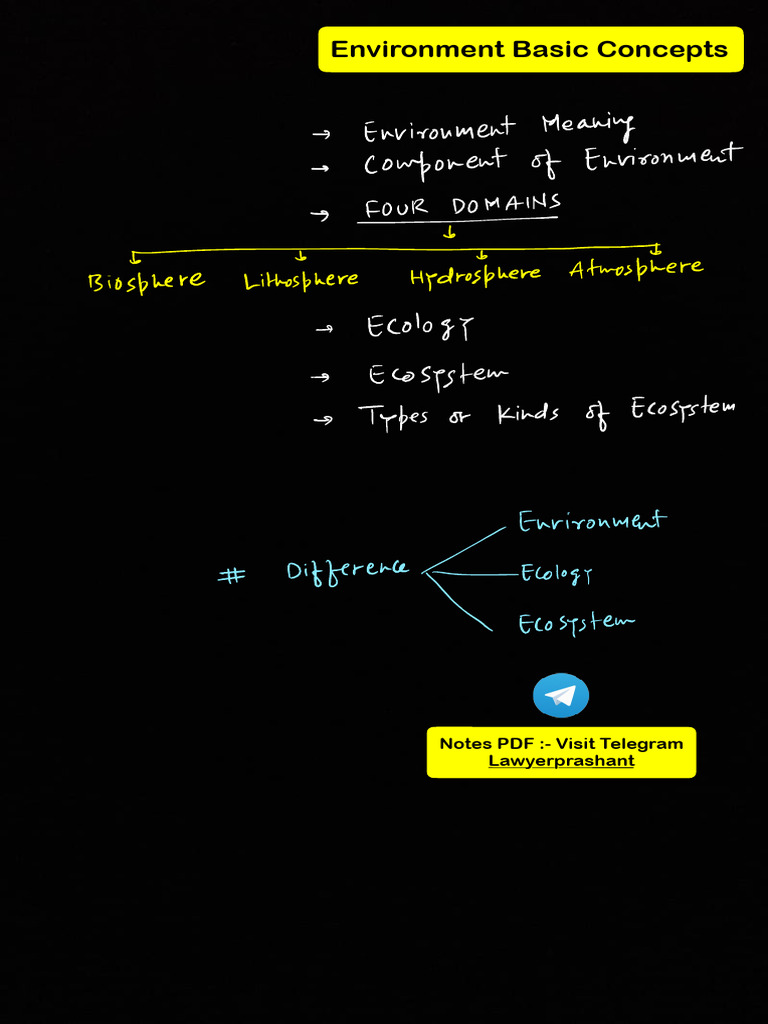 Environment Basic Concepts
→ Environment Meaning
→ Component of Environment
→ FOUR DOMAINS
Biosphere Lithosphere Hydrosphere Atmosphere
→ Ecology
→ Ecosystem
→ Types or Kinds of Ecosystem
Environment
# Difference Ecology
Ecosystem
Notes PDF :- Visit Telegram
Lawyerprashant